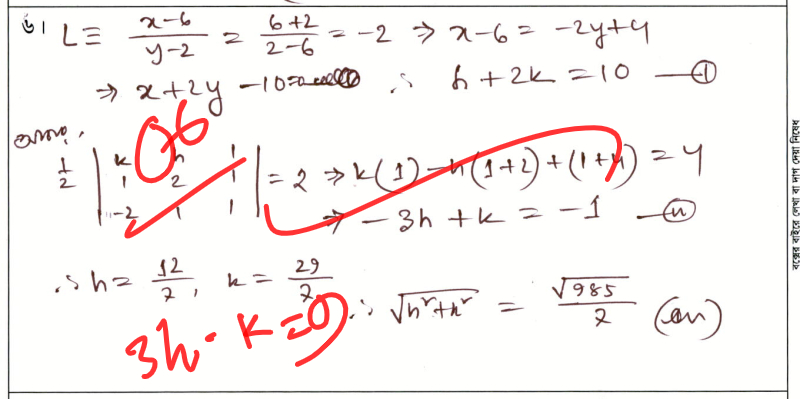 ৬। L ≡ x-6/y-2 = 6+2/2-6 = -2 ⇒ x-6 = -2y+4
⇒ x+2y-10=0 ∴ h+2k=10 —(i)
06
1/2 | k h 1 | = 2 ⇒ k(1) - h(1+2) + (1+4) = 4
1 2 1
-2 1 1
⇒ -3h+k = -1 —(ii)
∴ h = 12/7, k = 29/7 ∴ √h²+k² = √985/7 (Ans)
3h-k=9
বক্সের বাইরে লেখা বা দাগ দেয়া নিষেধ